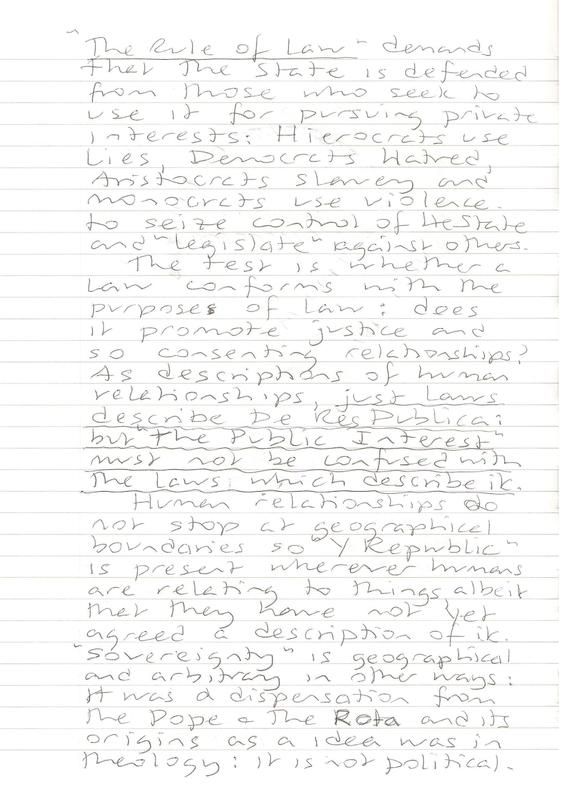 "The Rule of Law" demands
that The State is defended
from those who seek to
use it for pursuing private
interests: Hierocrats use
Lies, Democrats Hatred,
Aristocrats Slavery and
monocrats use violence.
to seize control of the State
and "legislate" against others.
The test is whether a
Law conforms with the
purposes of Law: does
it promote justice and
so consenting relationships?
As descriptions of human
relationships, just Laws
describe De Res Publica:
but "The Public Interest"
must not be confused with
the Laws which describe it.
Human relationships do
not stop at geographical
boundaries so "Y Repwblic"
is present wherever humans
are relating to things albeit
that they have not yet
agreed a description of it.
"Sovereignty" is geographical
and arbitrary in other ways:
it was a dispensation from
the Pope & The Rota and its
origins as a idea was in
theology: it is not political.